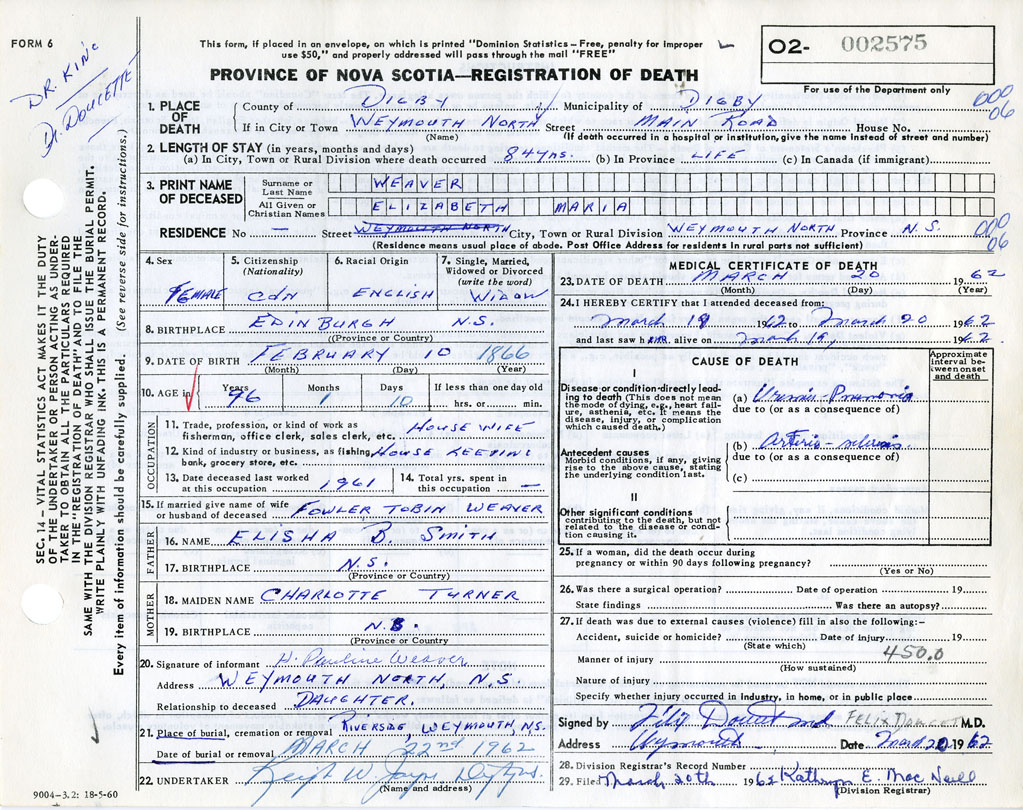 FORM 6
This form, if placed in an envelope, on which is printed "Dominion Statistics – Free, penalty for improper
use $50," and properly addressed will pass through the mail "FREE"
O2- 002575
For use of the Department only
PROVINCE OF NOVA SCOTIA—REGISTRATION OF DEATH
DR. KING
Dr. DOUCETTE
SEC. 14 – VITAL STATISTICS ACT MAKES IT THE DUTY
OF THE UNDERTAKER OR PERSON ACTING AS UNDER-
TAKER TO OBTAIN ALL THE PARTICULARS REQUIRED
IN THE "REGISTRATION OF DEATH" AND TO FILE THE
SAME WITH THE DIVISION REGISTRAR WHO SHALL ISSUE THE BURIAL PERMIT.
WRITE PLAINLY WITH UNFADING INK. THIS IS A PERMANENT RECORD.
Every item of information should be carefully supplied. (See reverse side for instructions.)
1. PLACE OF DEATH
County of DIGBY Municipality of DIGBY
000
06
If in City or Town WEYMOUTH NORTH Street MAIN ROAD House No.
(Name) (If death occurred in a hospital or institution, give the name instead of street and number)
2. LENGTH OF STAY (in years, months and days)
(a) In City, Town or Rural Division where death occurred 84 yrs. (b) In Province LIFE (c) In Canada (if immigrant)
3. PRINT NAME OF DECEASED
Surname or Last Name WEAVER
All Given or Christian Names ELIZABETH MARIA
RESIDENCE No — Street WEYMOUTH NORTH City, Town or Rural Division WEYMOUTH NORTH Province N.S.
000
06
(Residence means usual place of abode. Post Office Address for residents in rural parts not sufficient)
4. Sex FEMALE
5. Citizenship (Nationality) CDN
6. Racial Origin ENGLISH
7. Single, Married, Widowed or Divorced (write the word) WIDOW
8. BIRTHPLACE EDINBURGH N.S.
(Province or Country)
9. DATE OF BIRTH FEBRUARY 10 1866
(Month) (Day) (Year)
10. AGE in Years 96 Months 1 Days 10 If less than one day old hrs. or min.
OCCUPATION
11. Trade, profession, or kind of work as fisherman, office clerk, sales clerk, etc. HOUSE WIFE
12. Kind of industry or business, as fishing, bank, grocery store, etc. HOUSE KEEPING
13. Date deceased last worked at this occupation 1961
14. Total yrs. spent in this occupation —
15. If married give name of wife or husband of deceased FOWLER TOBIN WEAVER
FATHER
16. NAME ELISHA B. SMITH
17. BIRTHPLACE N.S.
(Province or Country)
MOTHER
18. MAIDEN NAME CHARLOTTE TURNER
19. BIRTHPLACE N.B.
(Province or Country
20. Signature of informant H. Pauline Weaver
Address WEYMOUTH NORTH, N.S.
Relationship to deceased DAUGHTER.
21. Place of burial, cremation or removal RIVERSIDE, WEYMOUTH, N.S.
Date of burial or removal MARCH 22nd 1962
22. UNDERTAKER W.
(Name and address)
9004–3.2: 18-5-60
MEDICAL CERTIFICATE OF DEATH
23. DATE OF DEATH MARCH 20 1962
(Month) (Day) (Year)
24. I HEREBY CERTIFY that I attended deceased from:
March 19 1962 to March 20 1962
and last saw her alive on March 19, 1962
CAUSE OF DEATH
Approximate interval between onset and death
I
Disease or condition directly leading to death (This does not mean the mode of dying, e.g., heart failure, asthenia, etc. It means the disease, injury, or complication which caused death.)
(a)
due to (or as a consequence of)
Antecedent causes
Morbid conditions, if any, giving rise to the above cause, stating the underlying condition last.
(b) Arterio-
due to (or as a consequence of)
(c)
II
Other significant conditions
contributing to the death, but not related to the disease or condition causing it.
25. If a woman, did the death occur during
pregnancy or within 90 days following pregnancy?
(Yes or No)
26. Was there a surgical operation? Date of operation 19
State findings Was there an autopsy?
27. If death was due to external causes (violence) fill in also the following:–
Accident, suicide or homicide? Date of injury 19
(State which)
450.0
Manner of injury
(How sustained)
Nature of injury
Specify whether injury occurred in industry, in home, or in public place
Signed by M.D.
Address Weymouth Date Mar 20 1962
28. Division Registrar's Record Number
29. Filed March 20th 1962 Kathryn E. MacNeill
(Division Registrar)